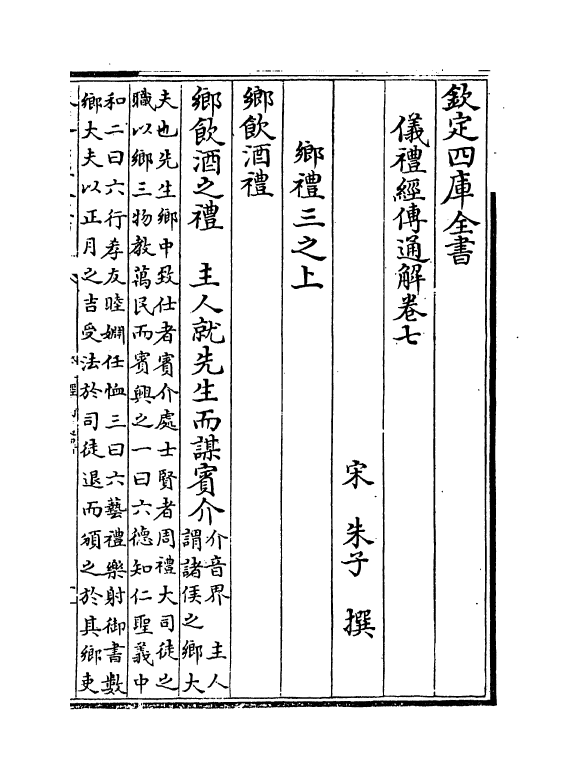 欽定四庫全書
儀禮經傳通解卷七
宋　朱子　撰
鄉禮三之上
鄉飲酒禮
鄉飲酒之禮　主人就先生而謀賓介
介音界　主人
謂諸侯之鄉大
夫也先生鄉中致仕者賓介處士賢者周禮大司徒之
職以鄉三物教萬民而賓興之一曰六德知仁聖義中
和二曰六行孝友睦婣任恤三曰六藝禮樂射御書數
鄉大夫以正月之吉受法於司徒退而頒之於其鄉吏